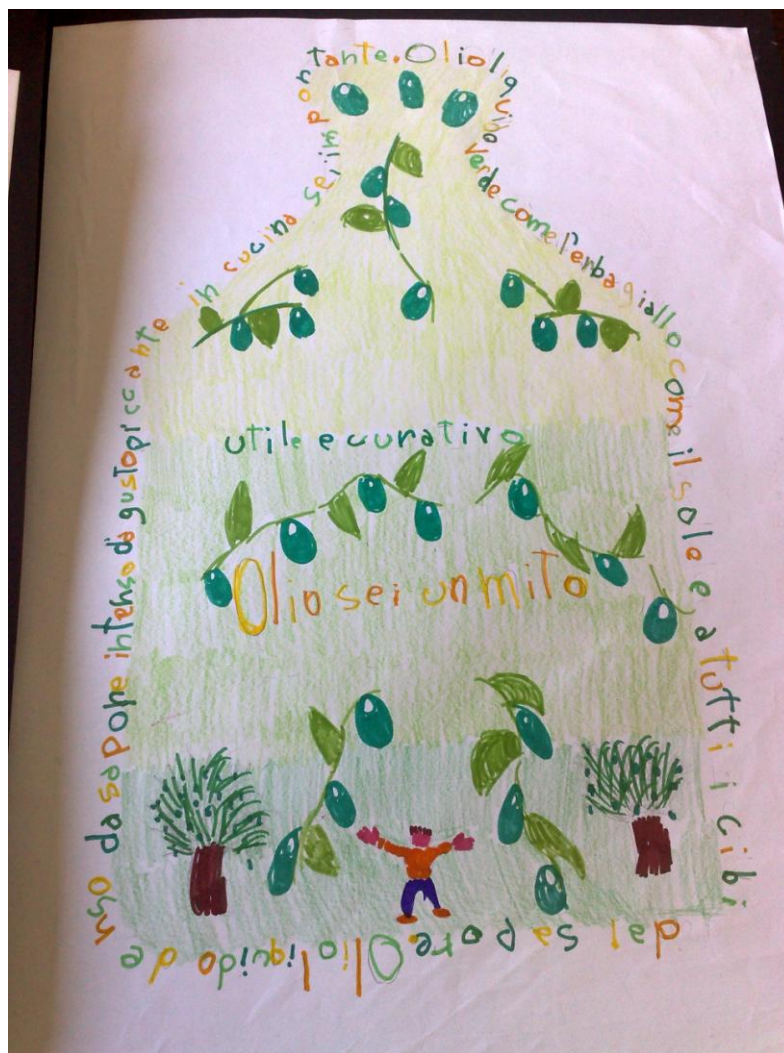 Olio liquido verde come l'erba giallo come il sole e a tutti i cibi dai sapore. Olio liquido denso da sapore intenso da gusto piccante in cucina sei importante.
utile e curativo
Olio sei un mito